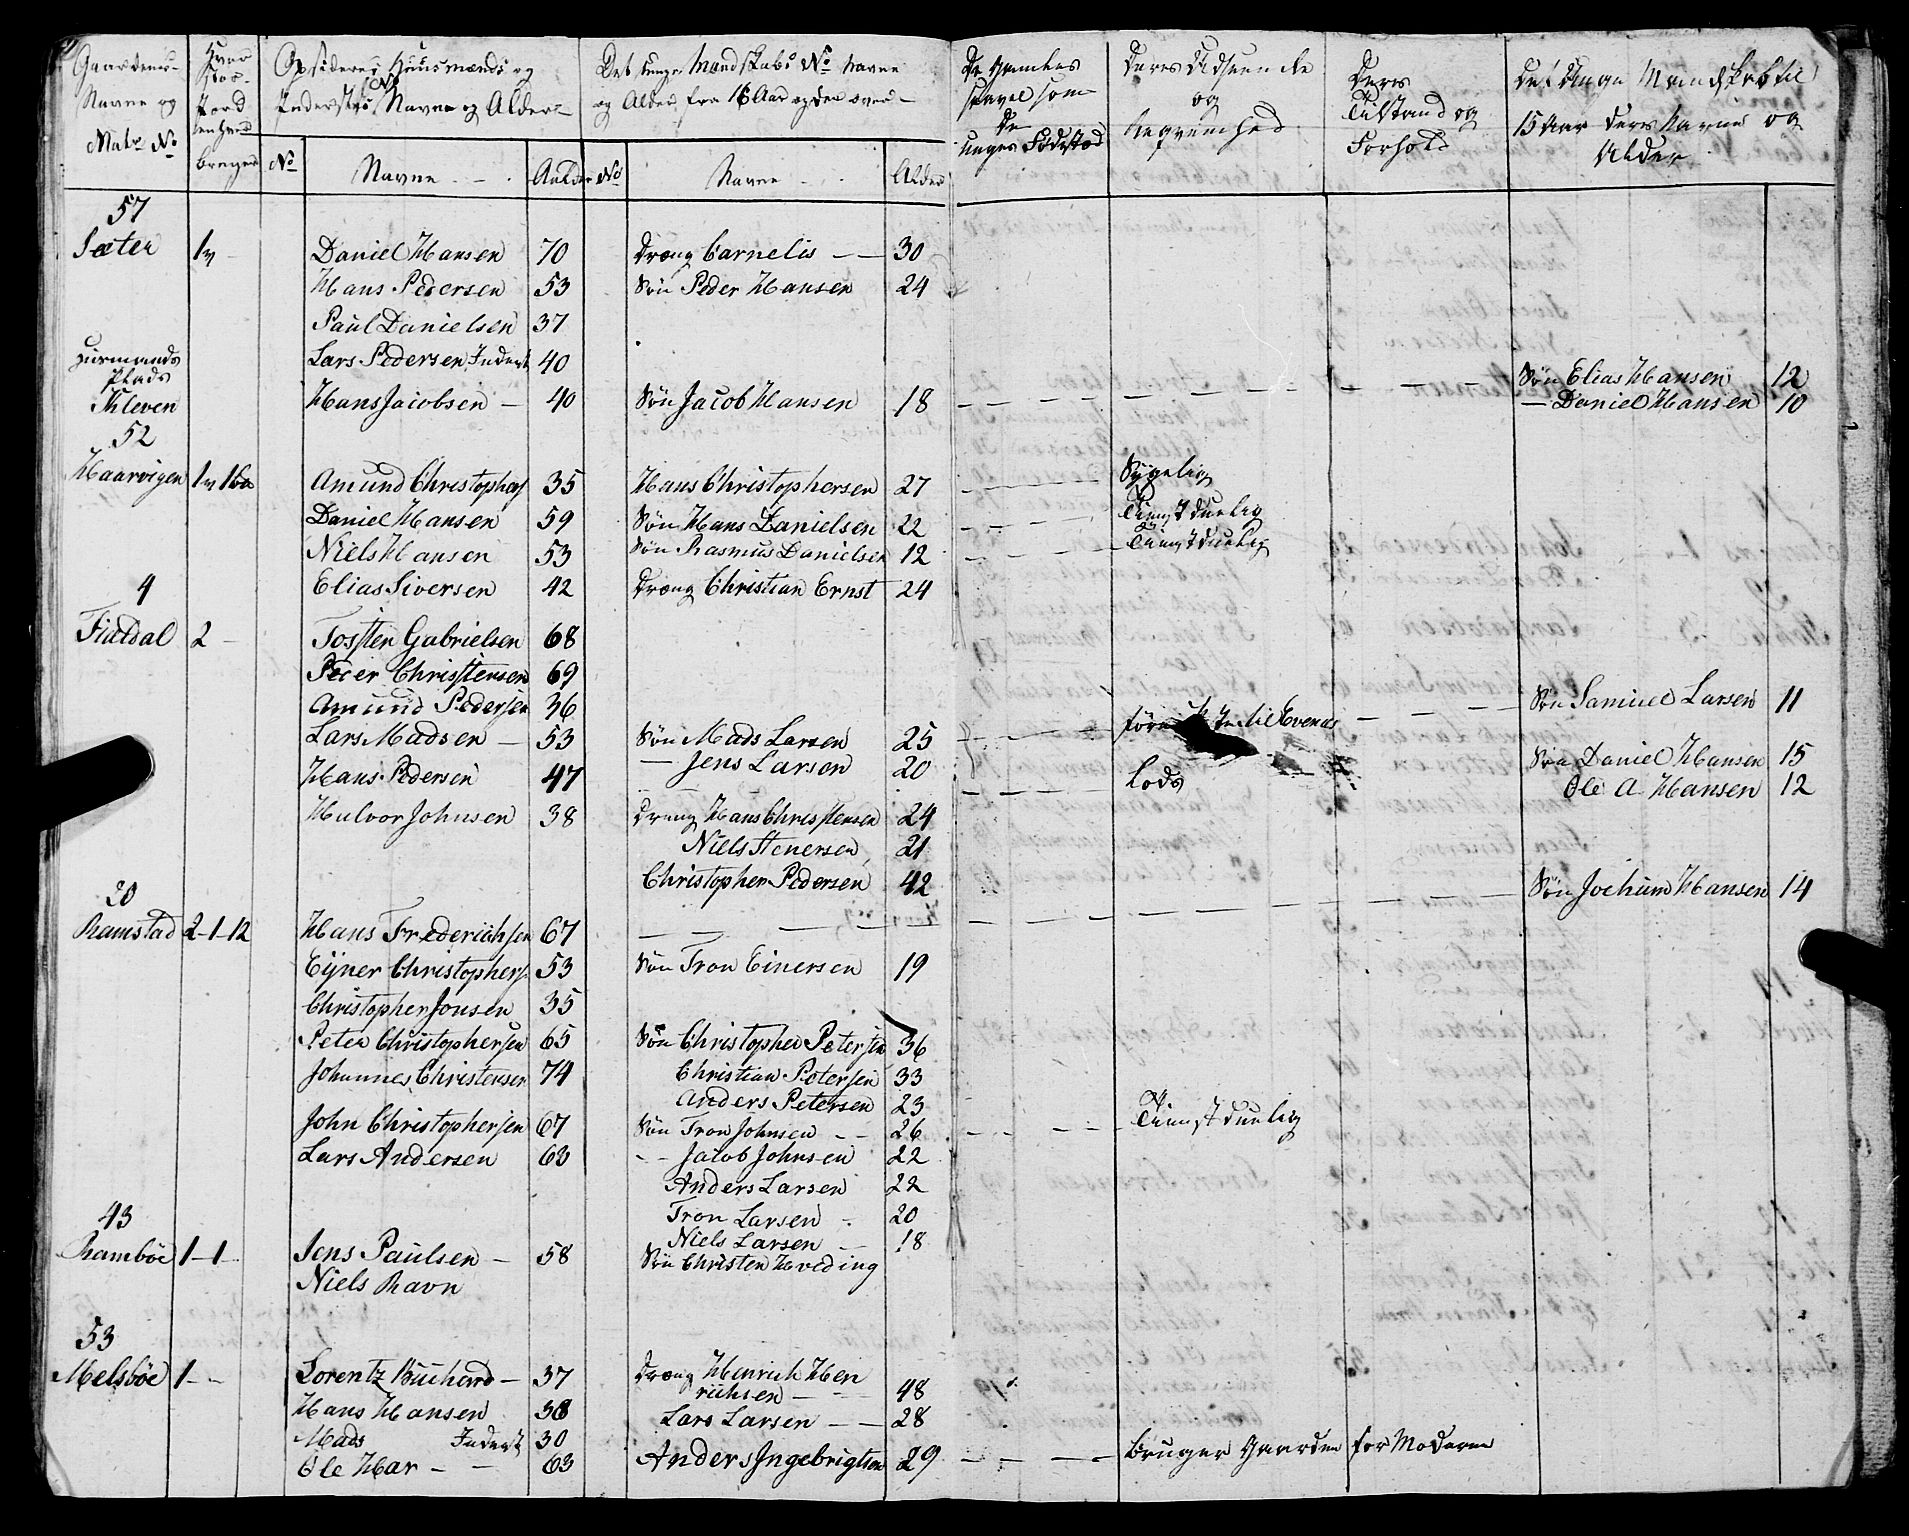 Gaardenes Navne og Matr No
Hver
bruged
Opsideres Huusmænds og
Inderstes Navne og Alder
Det unge Mandskabs No Navne
og Alder fra 16 Aar og der over
De Gamles
saavel som
De
unges Fødestæd
Deres Udseende
og
Beqvemhed
Deres
Tilstand og
Forhold
Det Unge Mandskab til
15 Aar deres Navne og
Alder
No Navne Alder No Navne Alder
57
Sæter 1 v Daniel Hansen 70 Dræng Carnelis 30
Hans Pedersen 53 Søn Peder Hansen 24
Paul Danielsen 37
Lars Pedersen Inderst 40
Huusmands
Plads
Kleven Hans Jacobsen 40 Søn Jacob Hansen 18 Søn Elias Hansen 12
— Daniel Hansen 10
52
Haarvigen 1 v Amund Christophers 35 Hans Christophersen 27 Sÿgelig
Daniel Hansen 59 Søn Hans Danielsen 22 Tienstduelig
Niels Hansen 53 Søn Rasmus Danielsen 12 Tienstduelig
Elias Siversen 42 Dræng Christian Ernst 24
4
Fiældal 2 Tosten Gabrielsen 68
Peder Christensen 69
Amund Pedersen 36 Søn Samuel Larsen 11
Lars Madsen 53 Søn Mads Larsen 25
— Jens Larsen 20
Hans Pedersen 47 Lods Søn Daniel Hansen 15
Ole A Hansen 12
Halvor Johnsen 38 Dræng Hans Christensen 24
Niels Stenersen 21
Christopher Pedersen 42
20
Ramstad 2-1-12 Hans Frederichsen 67 Søn Jochum Hansen 14
Eÿner Christophers 53 Søn Tron Einersen 19
Christopher Jonsen 35
Peter Christophersen 65 Søn Christopher Petersen 36
Johannes Christensen 74 Christian Petersen 33
Anders Petersen 23
John Christophersen 67 Søn Tron Johnsen 26 Tienstduelig
Lars Andersen 63 — Jacob Johnsen 22
Anders Larsen 22
Tron Larsen 20
Niels Larsen 18
43
Ramböe 1-1 Jens Paulsen 58 Søn Christen Hveding
Niels Ravn
53
Melsböe 1 Lorentz Buchard 37 Dræng Henrich Hen
richsen 48
Hans Hansen 38 Lars Larsen 28
Mads Inderst 30
Ole Har 63 Anders Ingebrigtsen 29 Bruger Gaarden for Moderen